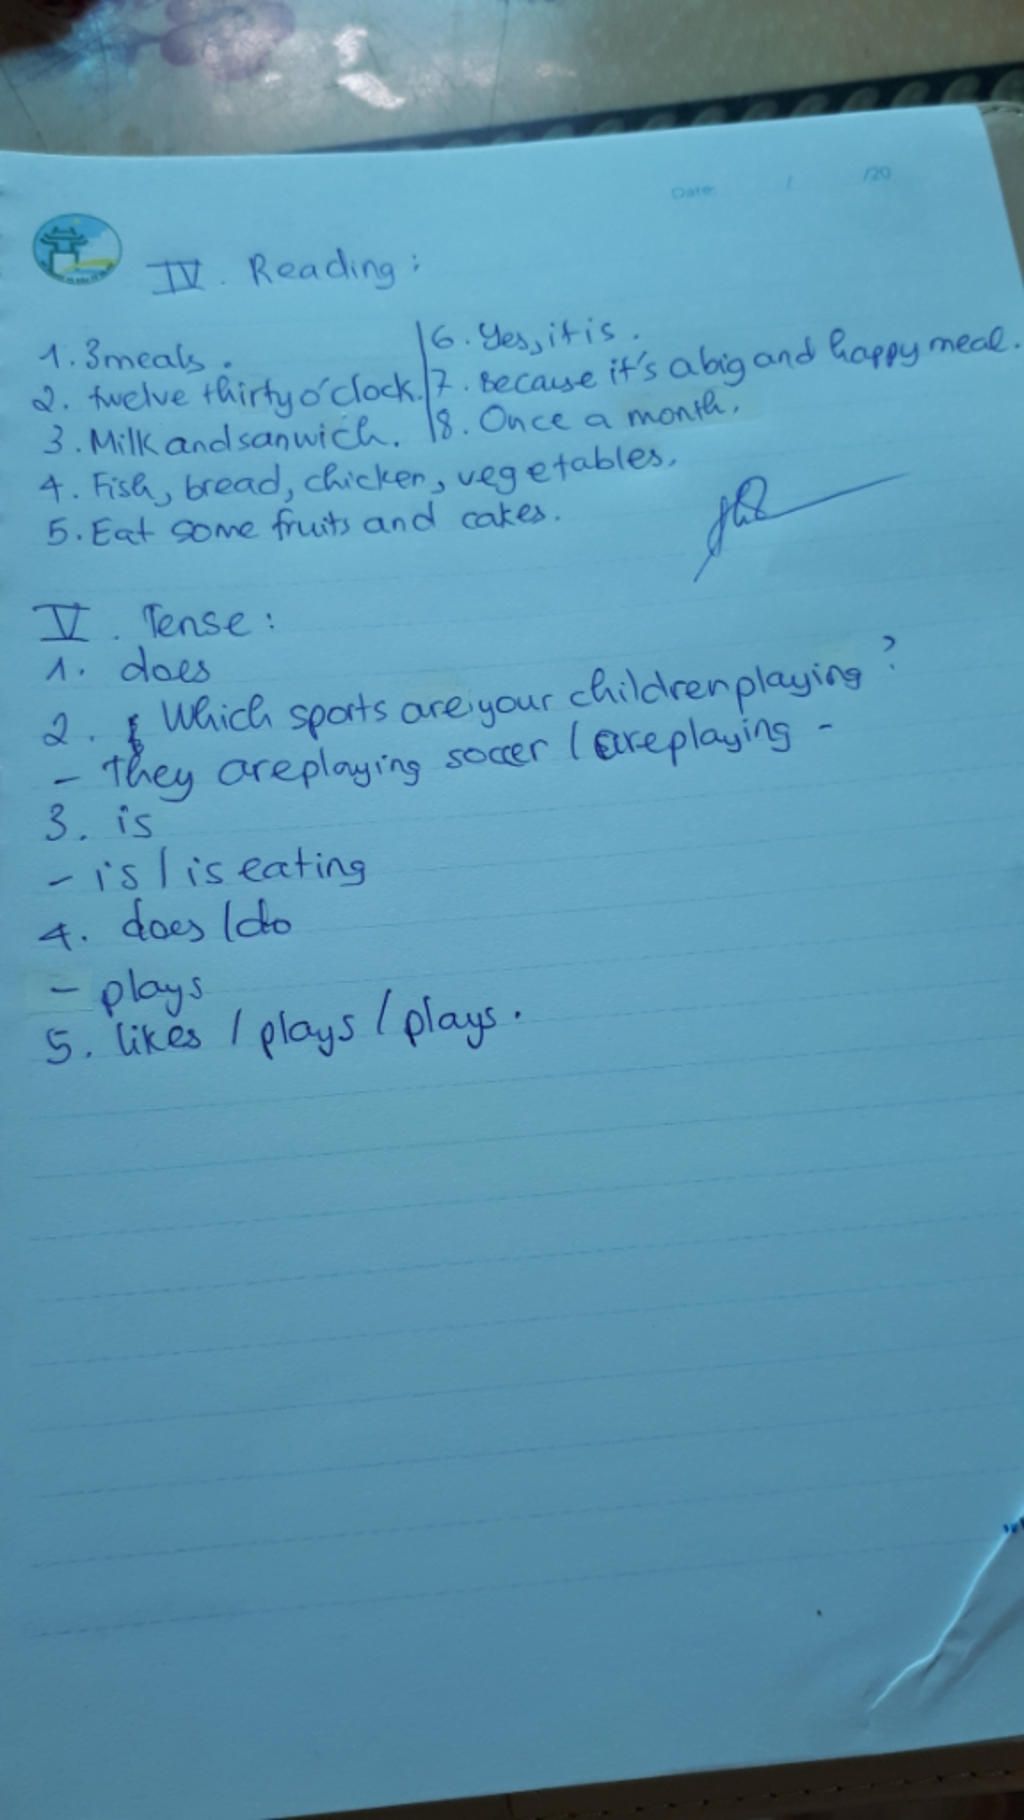 Date: / /20
IV. Reading:
1. 3 meals.
2. twelve thirty o'clock.
3. Milk and sanwich.
4. Fish, bread, chicken, vegetables.
5. Eat some fruits and cakes.
6. Yes, it is.
7. Because it's a big and happy meal.
8. Once a month.
V. Tense:
1. does
2. Which sports are your children playing?
- They are playing soccer / are playing -
3. is
- is / is eating
4. does / do
- plays
5. likes / plays / plays.